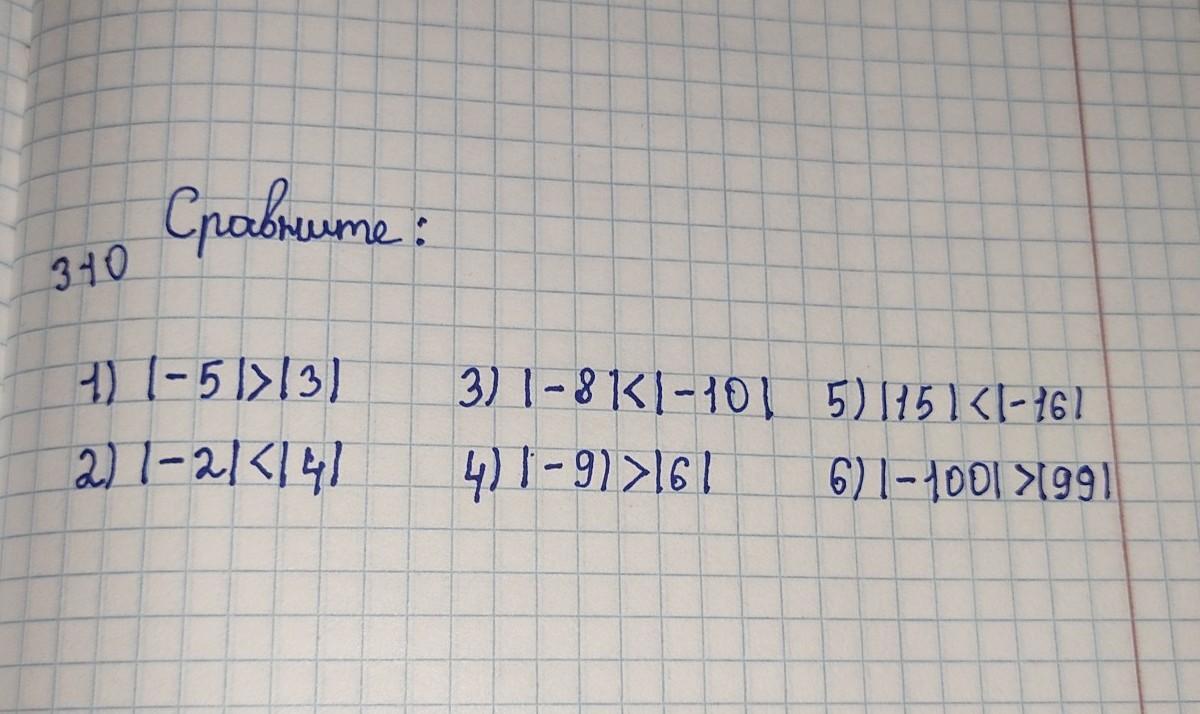 Сравните:
310
1) |-5|>|3| 3) |-8|<|-10| 5) |15|<|-16|
2) |-2|<|4| 4) |-9|>|6| 6) |-100|>|99|